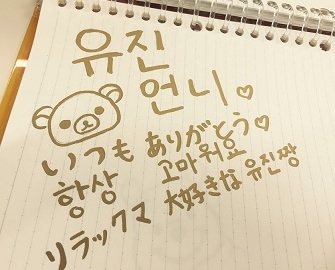 유진
언니♡
いつも ありがとう♡
항상 고마워요
リラックマ 大好きな 유진짱